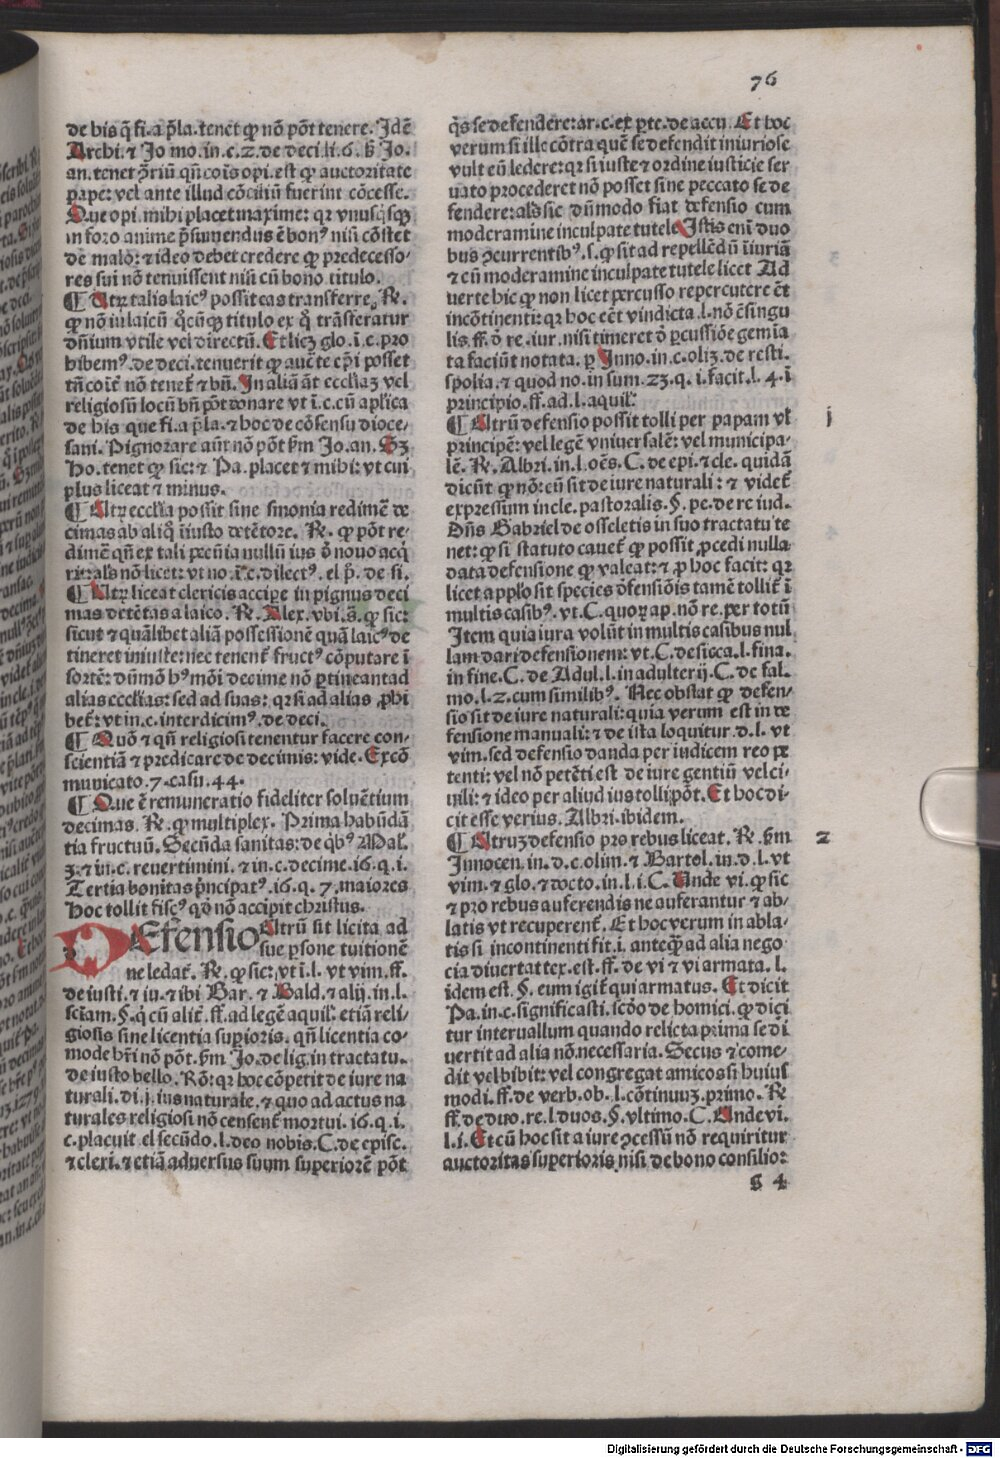 76
de his q̄ fi. a p̄la. tenet ꝙ nō pōt tenere. Idē
Archi. ⁊ Jo mo. in. c. 2. de deci. li. 6. Jo.
an. tenet ꝯ̄riū qn̄ cois opi. est ꝙ auctoritate
pape: vel ante illud cōciliū fuerint cōcesse.
Que opi. mihi placet maxime: qꝛ vnusqsqꝫ
in foro anime p̄sumendus ē bonꝰ nisi cōstet
de malo: ⁊ ideo debet credere ꝙ predecesso-
res sui nō tenuissent nisi cū bono titulo.
¶ Utꝝ talis laicꝰ possit eas transferre. R̄.
ꝙ nō iu laicū q̊cūqꝫ titulo ex q̊ trāsferatur
dn̄ium vtile vel directū. Et licꝫ glo. i. c. pro
hibemꝰ. de deci. tenuerit ꝙ auctē ep̄i posset
tn̄ coiť nō teneť ⁊ bn̄. In aliā āt eccłiaꝫ vel
religiosū locū bn̄ pōt donare vt ī. c. cū aplica
de his que fi. a p̄la. ⁊ hoc de cōsensu dioce-
sani. Pignorare aūt nō pōt ẜm Jo. an. Sꝫ
ho. tenet ꝙ sic: ⁊ Pa. placet ⁊ mihi: vt cui
plus liceat ⁊ minus.
¶ Utꝝ ecclīa possit sine simonia redimē de
cimas ab aliq̊ iīusto detētore. R̄. ꝙ pōt re
dimē qn̄ ex tali pecūia nullū ius ō nouo acq̄
riť: als nō licet: vt no. ī. c. dilectꝰ. el. p̄. de si.
¶ Utꝝ liceat clericis accipe in pignus deci
mas detētas a laico. R̄. Alex. vbi. s̄. ꝙ sic:
sicut ⁊ quālibet aliā possessionē quā laicꝰ de
tineret iniuste: nec tenenť fructꝰ cōputare ī
sortē: dūmō hꝰmōi decime nō ꝑtineant ad
alias ecclīas: sed ad suas: qꝛ si ad alias ꝓhi
beť: vt in. c. interdicimꝰ. de deci.
¶ Quō ⁊ qn̄ religiosi tenentur facere con-
scientiā ⁊ predicare de decimis: vide. Excō
municato. 7. casu. 44.
¶ Que ē remuneratio fideliter soluētium
decimas. R̄. ꝙ multiplex. Prima habūdā
tia fructuū. Secūda sanitas: de qbꝰ Mal.
3. ⁊ in. c. reuertimini. ⁊ in. c. decime. 16. q. i.
Tertia bonitas p̄ncipatꝰ. 16. q. 7. maiores
hoc tollit fiscꝰ qd̄ nō accipit christus.
DEfensio Utrū sit licita ad
sue ꝑsone tuitionē
ne ledať. R̄. ꝙ sic: vt ī. l. vt vim. ff.
de iusti. ⁊ iu. ⁊ ibi Bar. ⁊ Bald. ⁊ alij. in. l.
scīam. §. q̇ cū aliť. ff. ad legē aquil. etiā reli-
giosis sine licentia suꝑioris. qn̄ licentia co-
mode hr̄i nō pōt. ẜm Jo. de lig. in tractatu.
de iusto bello. Rō: qꝛ hoc cōpetit de iure na
turali. di. j. ius naturale. ⁊ quo ad actus na
turales religiosi nō censenť mortui. 16. q. i.
c. placuit. el secūdo. l. deo nobis. C. de episc.
⁊ cleri. ⁊ etiā aduersus suum superiorē pōt
q̇s se defendere: ar. c. ex ꝑte. de accu. Et hoc
verum si ille cōtra quē se defendit iniuriose
vult eū ledere: qꝛ si iuste ⁊ ordine iusticie ser
uato procederet nō posset sine peccato se de
fendere: als sic dū modo fiat defensio cum
moderamine inculpate tutele Istis eni duo
bus ꝯcurrentibꝰ. s. ꝙ sit ad repellēdū iīuriā
⁊ cū moderamine inculpate tutele licet Ad
uerte hic ꝙ non licet percusso repercutere ēt
incōtinenti: qꝛ hoc eēt vindicta. l. nō ē singu
lis. ff. ō re. iur. nisi timeret ō ꝑcussiōe gemīa
ta faciūt notata. ꝑ Inno. in. c. oliꝫ. de resti.
spolia. ⁊ quod no. in sum. 23. q. i. facit. l. 4. ī
principio. ff. ad. l. aquil.
¶ Utrū defensio possit tolli per papam vł i
principē: vel legē vniuersalē: vel municipa-
lē. R̄. Albri. in. l. oēs. C. de epi. ⁊ cle. quidā
dicūt ꝙ nō: cū sit de iure naturali: ⁊ videť
expressum in cle. pastoralis. §. pe. de re iud.
Dn̄s Gabriel de osseletis in suo tractatu te
net: ꝙ si statuto caueť ꝙ possit ꝓcedi nulla
data defensione ꝙ valeat: ⁊ ꝓ hoc facit: qꝛ
licet applō sit species dfensiōis tamē tolliť ī
multis casibꝰ. vt. C. quoꝝ ap. nō re. per totū
Item quia iura volūt in multis casibus nul
lam dari defensionem: vt. C. de sicca. l. fina.
in fine. C. de Adul. l. in adulterij. C. de fal.
mo. l. 2. cum similibꝰ. Nec obstat ꝙ defen-
sio sit de iure naturali: quia verum est in de
fensione manuali: ⁊ de ista loquitur. d. l. vt
vim. sed defensio danda per iudicem reo pe
tenti: vel nō petēti est de iure gentiū vel ci-
uili: ⁊ ideo per aliud ius tolli pōt. Et hoc di-
cit esse verius. Albri. ibidem.
¶ Utruꝫ defensio pro rebus liceat. R̄. ẜm 2
Innocen. in. d. c. olim. ⁊ Bartol. in. d. l. vt
vim. ⁊ glo. ⁊ docto. in. l. i. C. Unde vi. ꝙ sic
⁊ pro rebus auferendis ne auferantur ⁊ ab-
latis vt recuperenť. Et hoc verum in abla-
tis si incontinenti fit. i. anteqꝫ ad alia nego
cia diuertat tex. est. ff. de vi ⁊ vi armata. l.
idem est. §. eum igiť qui armatus. Et dicit
Pa. in. c. significasti. scdo de homici. ꝙ dici
tur interuallum quando relicta prima se di
uertit ad alia nō necessaria. Secus ⁊ come-
dit vel bibit: vel congregat amicos si huius
modi. ff. de verb. ob. l. cōtinuuꝫ. primo. R̄
ff. de duo. re. l. duos. §. vltimo. C. Unde vi.
l. i. Et cū hoc sit a iure ꝯcessū nō requiritur
auctoritas superioris nisi de bono consilio:
g 4
Digitalisierung gefördert durch die Deutsche Forschungsgemeinschaft - DFG